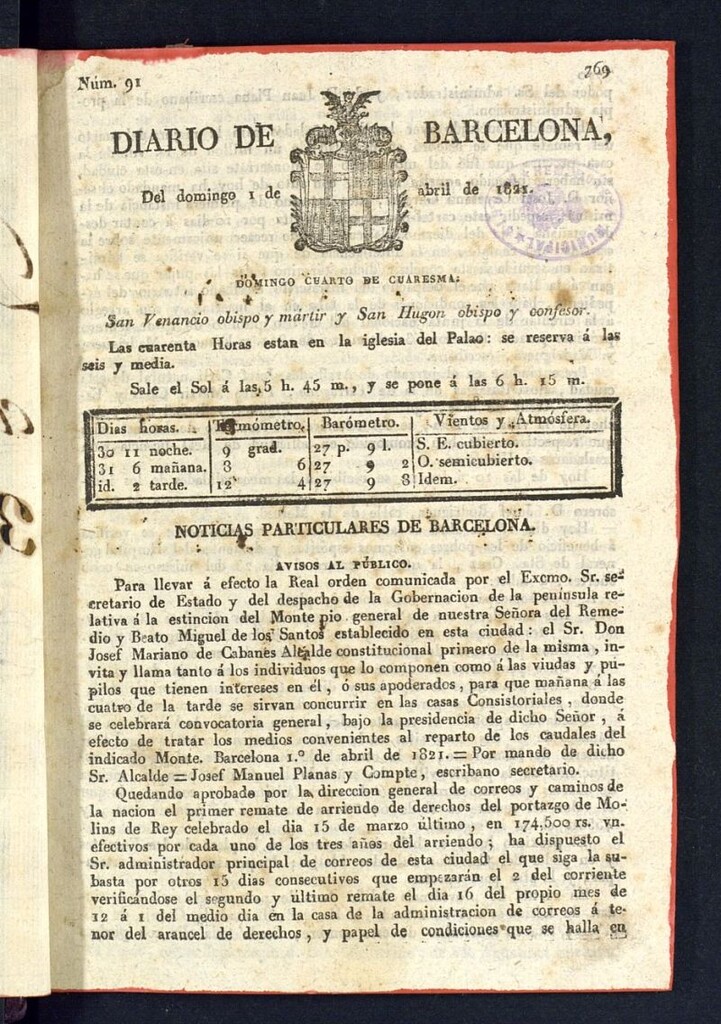 Núm. 91
769
DIARIO DE BARCELONA,
Del domingo 1 de abril de 1821.
MUNICIPAL
DOMINGO CUARTO DE CUARESMA:
San Venancio obispo y mártir y San Hugon obispo y confesor.
Las cuarenta Horas estan en la iglesia del Palao: se reserva á las
seis y media.
Sale el Sol á las 5 h. 45 m., y se pone á las 6 h. 15 m.
Dias horas. Termómetro. Barómetro. Vientos y Atmósfera.
30 11 noche. 9 grad. 27 p. 9 l. S. E. cubierto.
31 6 mañana. 8 6 27 9 2 O. semicubierto.
id. 2 tarde. 12 4 27 9 8 Idem.
NOTICIAS PARTICULARES DE BARCELONA.
AVISOS AL PÚBLICO.
Para llevar á efecto la Real orden comunicada por el Excmo. Sr. se-
cretario de Estado y del despacho de la Gobernacion de la península re-
lativa á la estincion del Monte pio general de nuestra Señora del Reme-
dio y Beato Miguel de los Santos establecido en esta ciudad: el Sr. Don
Josef Mariano de Cabanes Alcalde constitucional primero de la misma, in-
vita y llama tanto á los individuos que lo componen como á las viudas y pu-
pilos que tienen intereses en él, ó sus apoderados, para que mañana á las
cuatro de la tarde se sirvan concurrir en las casas Consistoriales, donde
se celebrará convocatoria general, bajo la presidencia de dicho Señor, á
efecto de tratar los medios convenientes al reparto de los caudales del
indicado Monte. Barcelona 1.º de abril de 1821. = Por mando de dicho
Sr. Alcalde = Josef Manuel Planas y Compte, escribano secretario.
Quedando aprobado por la direccion general de correos y caminos de
la nacion el primer remate de arriendo de derechos del portazgo de Mo-
lins de Rey celebrado el dia 15 de marzo último, en 174,500 rs. vn.
efectivos por cada uno de los tres años del arriendo; ha dispuesto el
Sr. administrador principal de correos de esta ciudad el que siga la su-
basta por otros 15 dias consecutivos que empezarán el 2 del corriente
verificándose el segundo y último remate el dia 16 del propio mes de
12 á 1 del medio dia en la casa de la administracion de correos á te-
nor del arancel de derechos, y papel de condiciones que se halla en